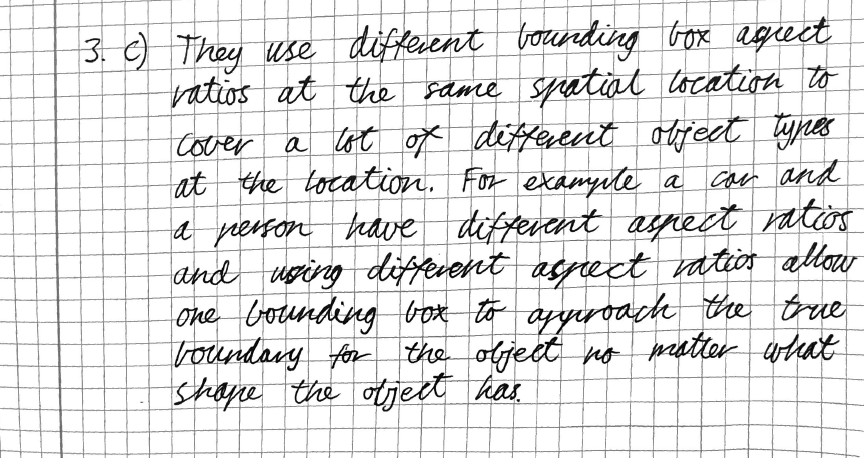 3. c) They use different bounding box aspect
ratios at the same spatial location to
cover a lot of different object types
at the location. For example a car and
a person have different aspect ratios
and using different aspect ratios allow
one bounding box to approach the true
boundary for the object no matter what
shape the object has.